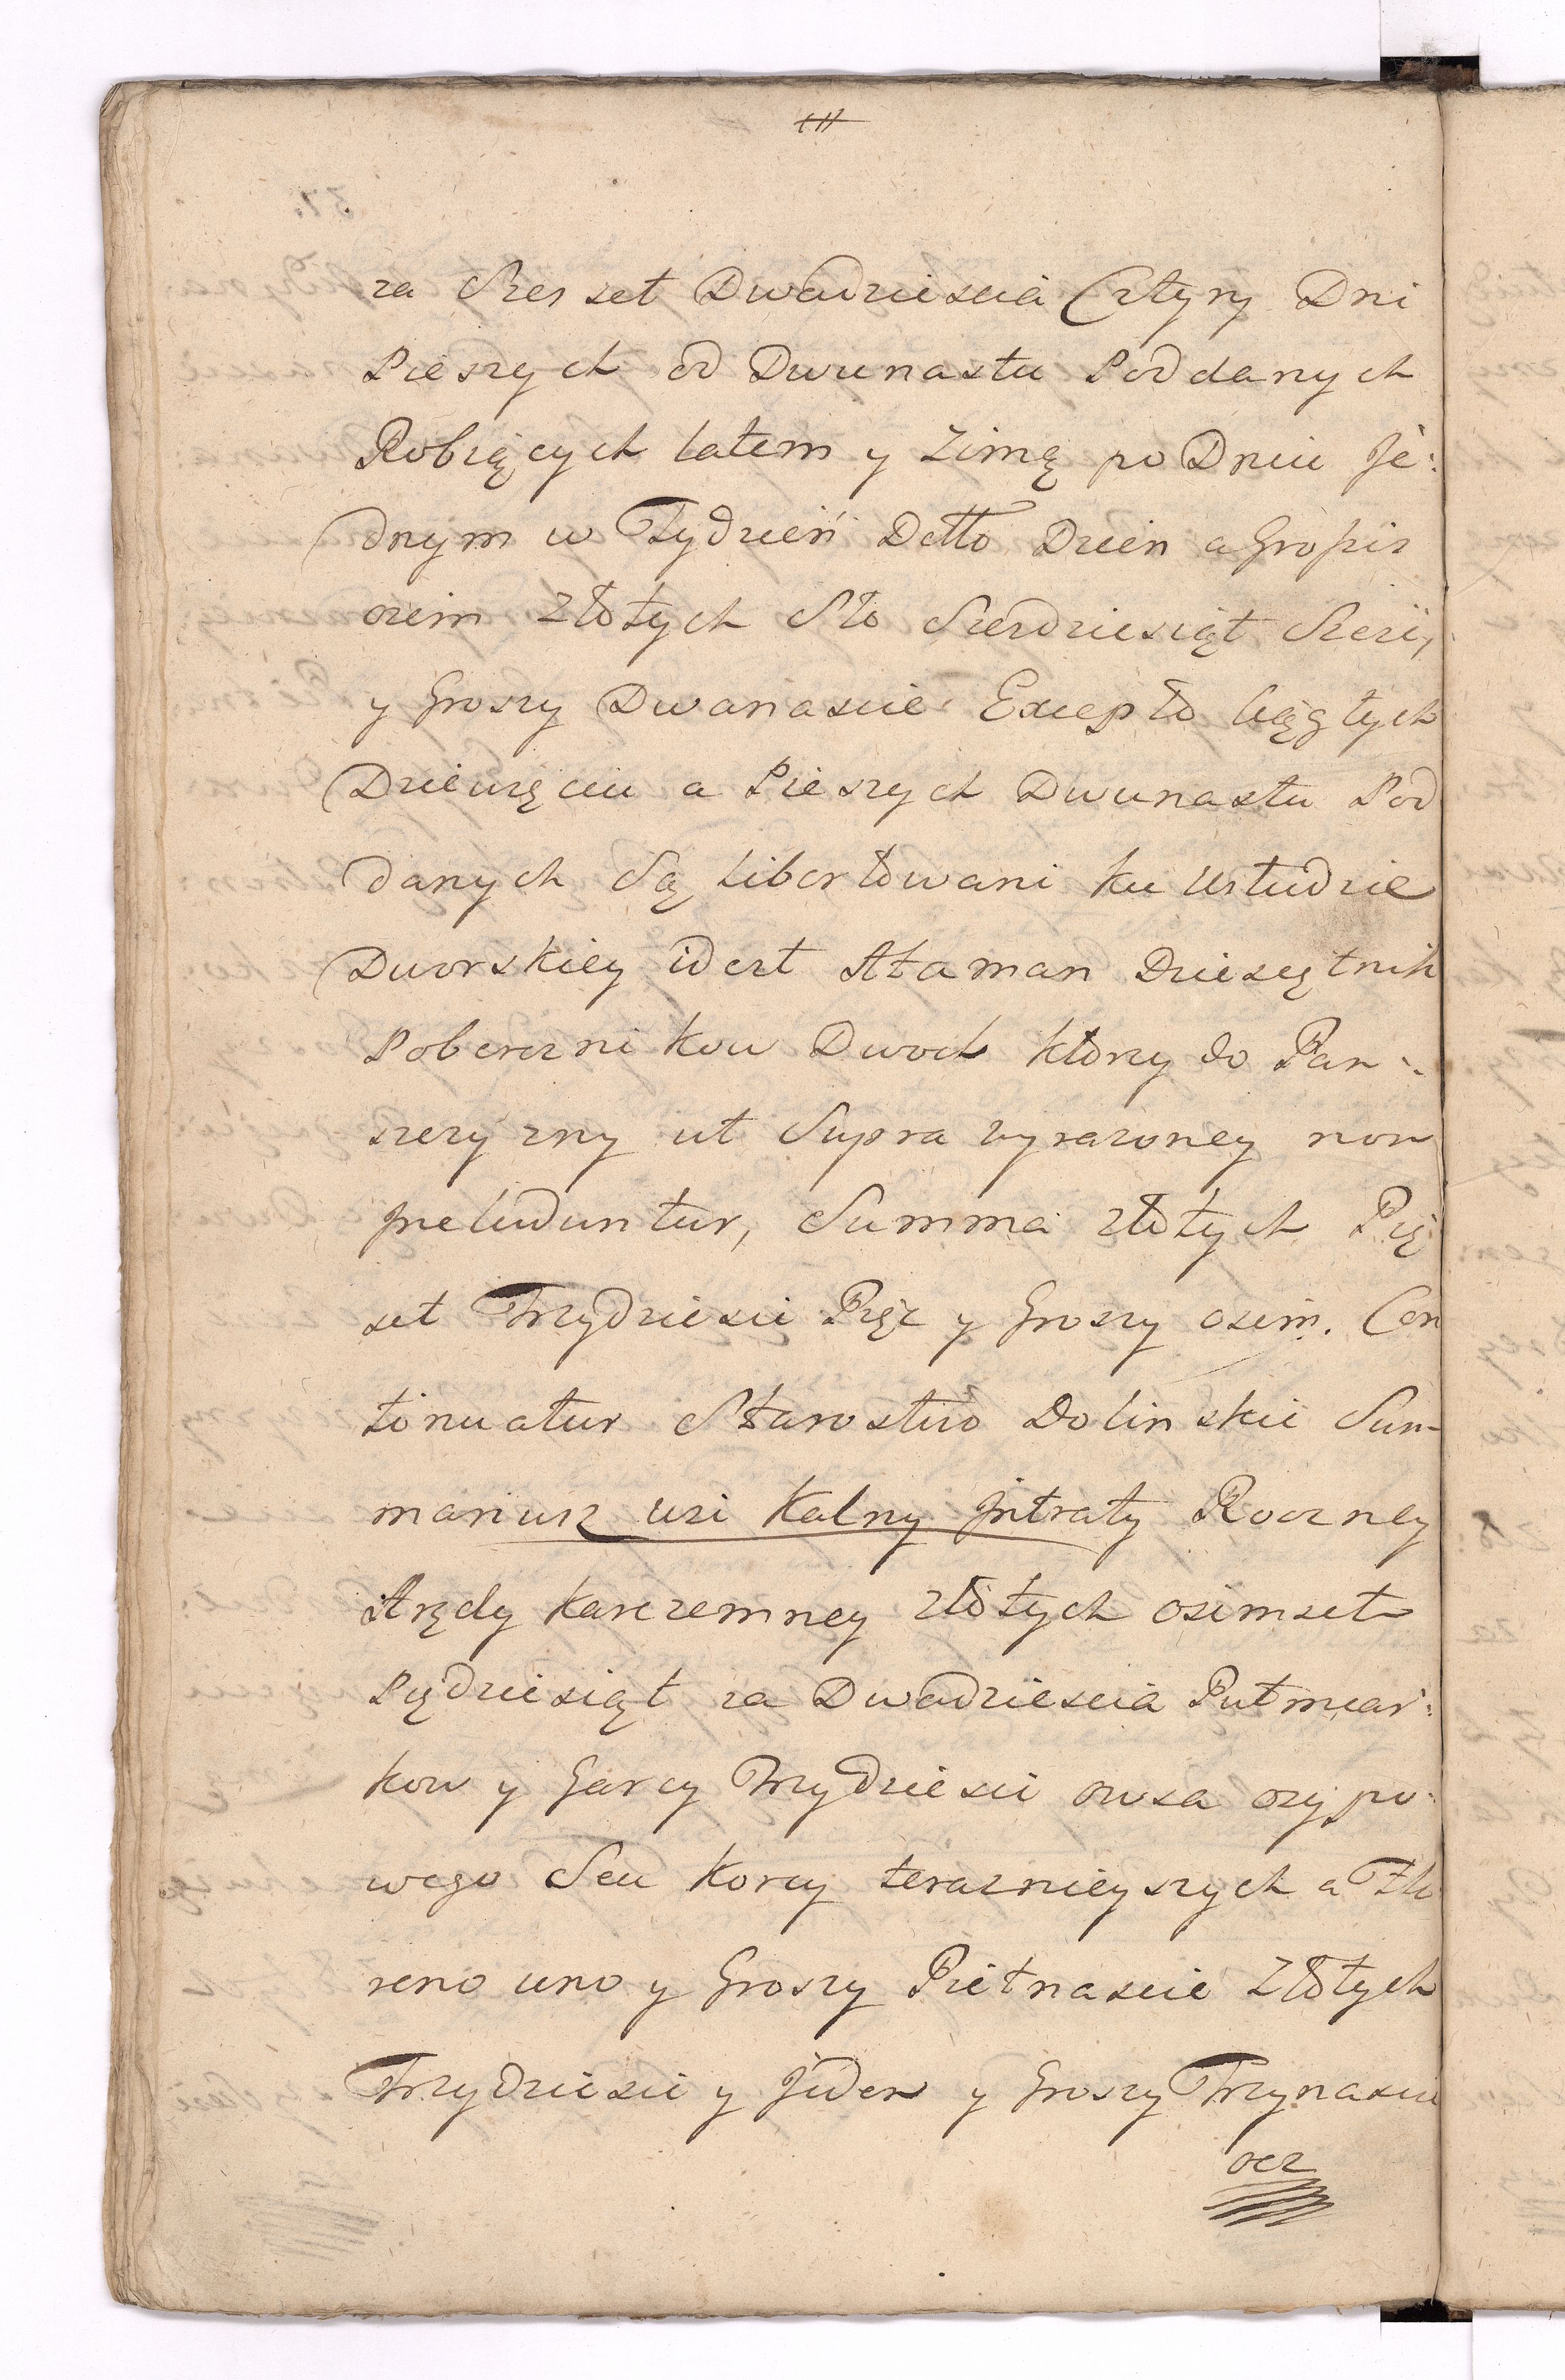 za Szes set Dwadziescia Cztyry Dni
Pieszych od Dwunastu Poddanych
Robiących latem y Zimą po Dniu Je:
dnym w Tydzień Detto Dzien a Groszis
ozim Złotych Sto Szesdziesiąt Szesc,
y Groszy Dwanascie Excepto Ciągłych
Dziewięciu a Pieszych Dwunastu Pod
danych Są libertowani ku Usludzie
Dworskiey idest Ataman Dziesiętnik
Pobereznikow Dwoch ktory do Pan:
szczyzny ut Supra wyrazoney non
preluduntur, Summa złotych Pię
set Trzydziesci Pięc y Groszy osim. Con
tinuatur Starostwo Dolinskie Sum-
mariusz uzi Kalny Jntraty Roczney
Arędy Karczemney złotych osimset
Pędziesiąt za Dwadziescia Putmiar:
kow y Garcy Trzydziesci owsa ozypo:
wego Seu Korcy teraznieyszych a Flo
reno uno y Groszy Pietnascie Złotych
Trzydziesci y Jeden y Groszy Trzynascie
ocz